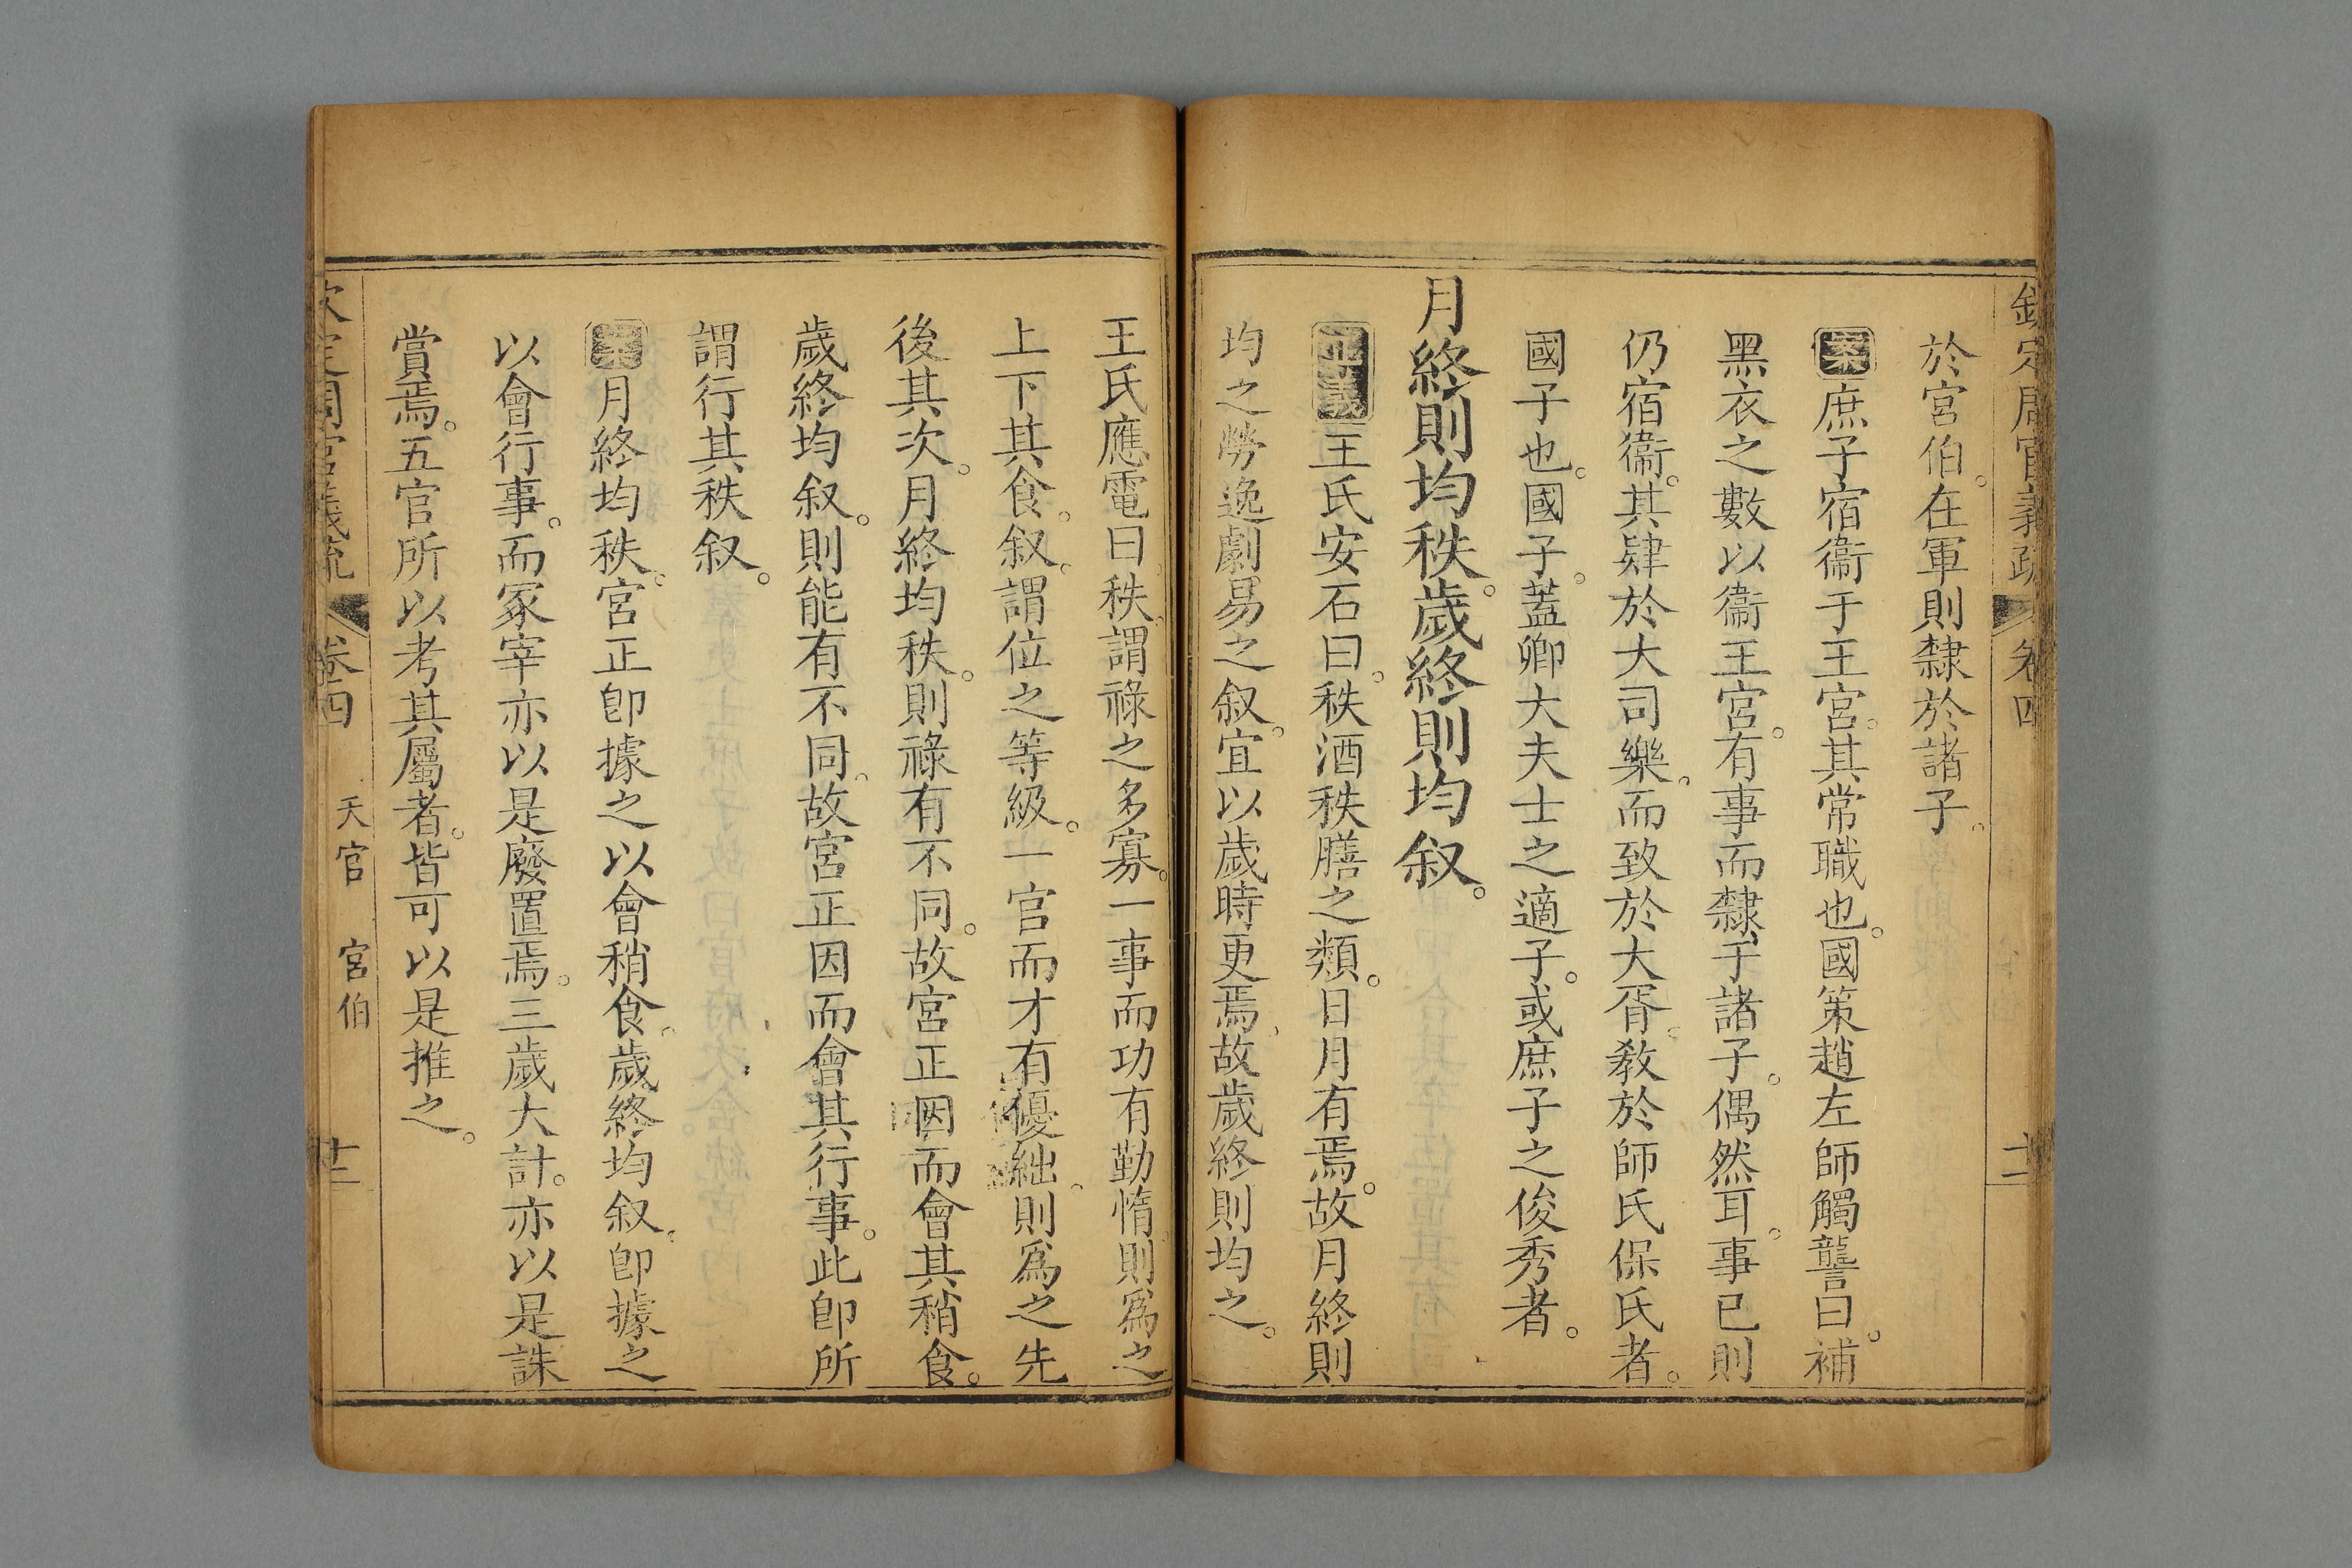 欽定周官義疏 卷四 十二
於宮伯。在軍則隸於諸子。
案庶子宿衞于王宮。其常職也。國策趙左師觸讋曰。補
黑衣之數以衞王宮。有事而隸于諸子。偶然耳。事已則
仍宿衞。其肄於大司樂。而致於大胥。教於師氏保氏者。
國子也。國子。蓋卿大夫士之適子。或庶子之俊秀者。
月終則均秩。歲終則均叙。
正義王氏安石曰。秩酒秩膳之類。日月有焉。故月終則
均之勞逸劇易之叙。宜以歲時更焉。故歲終則均之。
王氏應電曰。秩。謂祿之多寡。一事而功有勤惰。則爲之
上下其食。叙。謂位之等級。一官而才有優絀。則爲之先
後其次。月終均秩。則祿有不同。故宮正因而會其稍食。
歲終均叙。則能有不同。故宮正因而會其行事。此卽所
謂行其秩叙。
案月終均秩。宮正卽據之以會稍食。歲終均叙。卽據之
以會行事。而冢宰亦以是廢置焉。三歲大計。亦以是誅
賞焉。五官所以考其屬者。皆可以是推之。
欽定周官義疏 卷四 天官 宮伯 十二